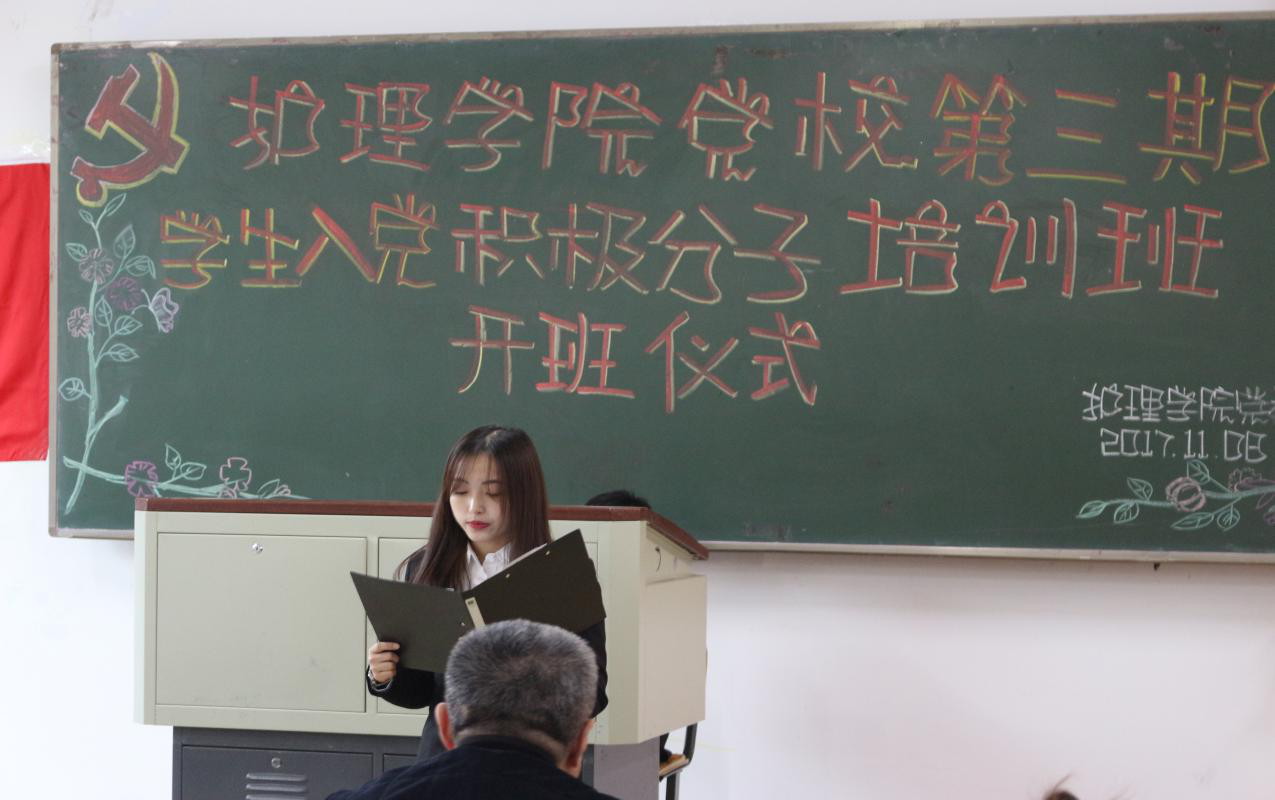 护理学院党校第三期
学生入党积极分子培训班
开班仪式
护理学院党
2017.11.08